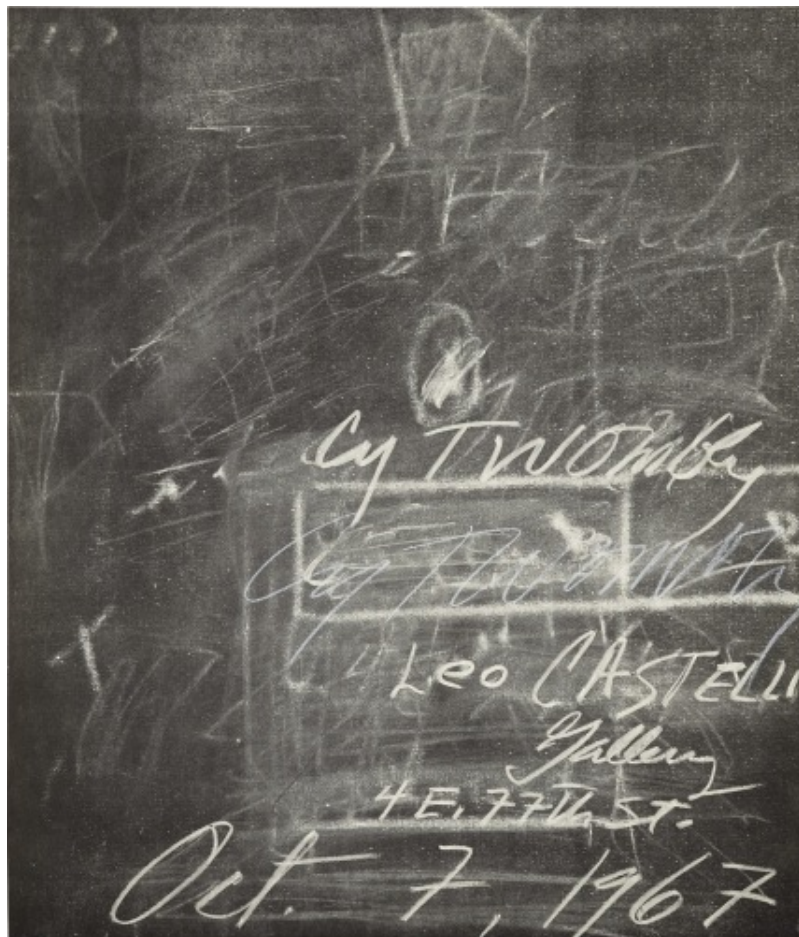 Cy TWOMBLY
Cy Twombly
Leo CASTELLI
Gallery
4 E. 77th St.
Oct. 7, 1967